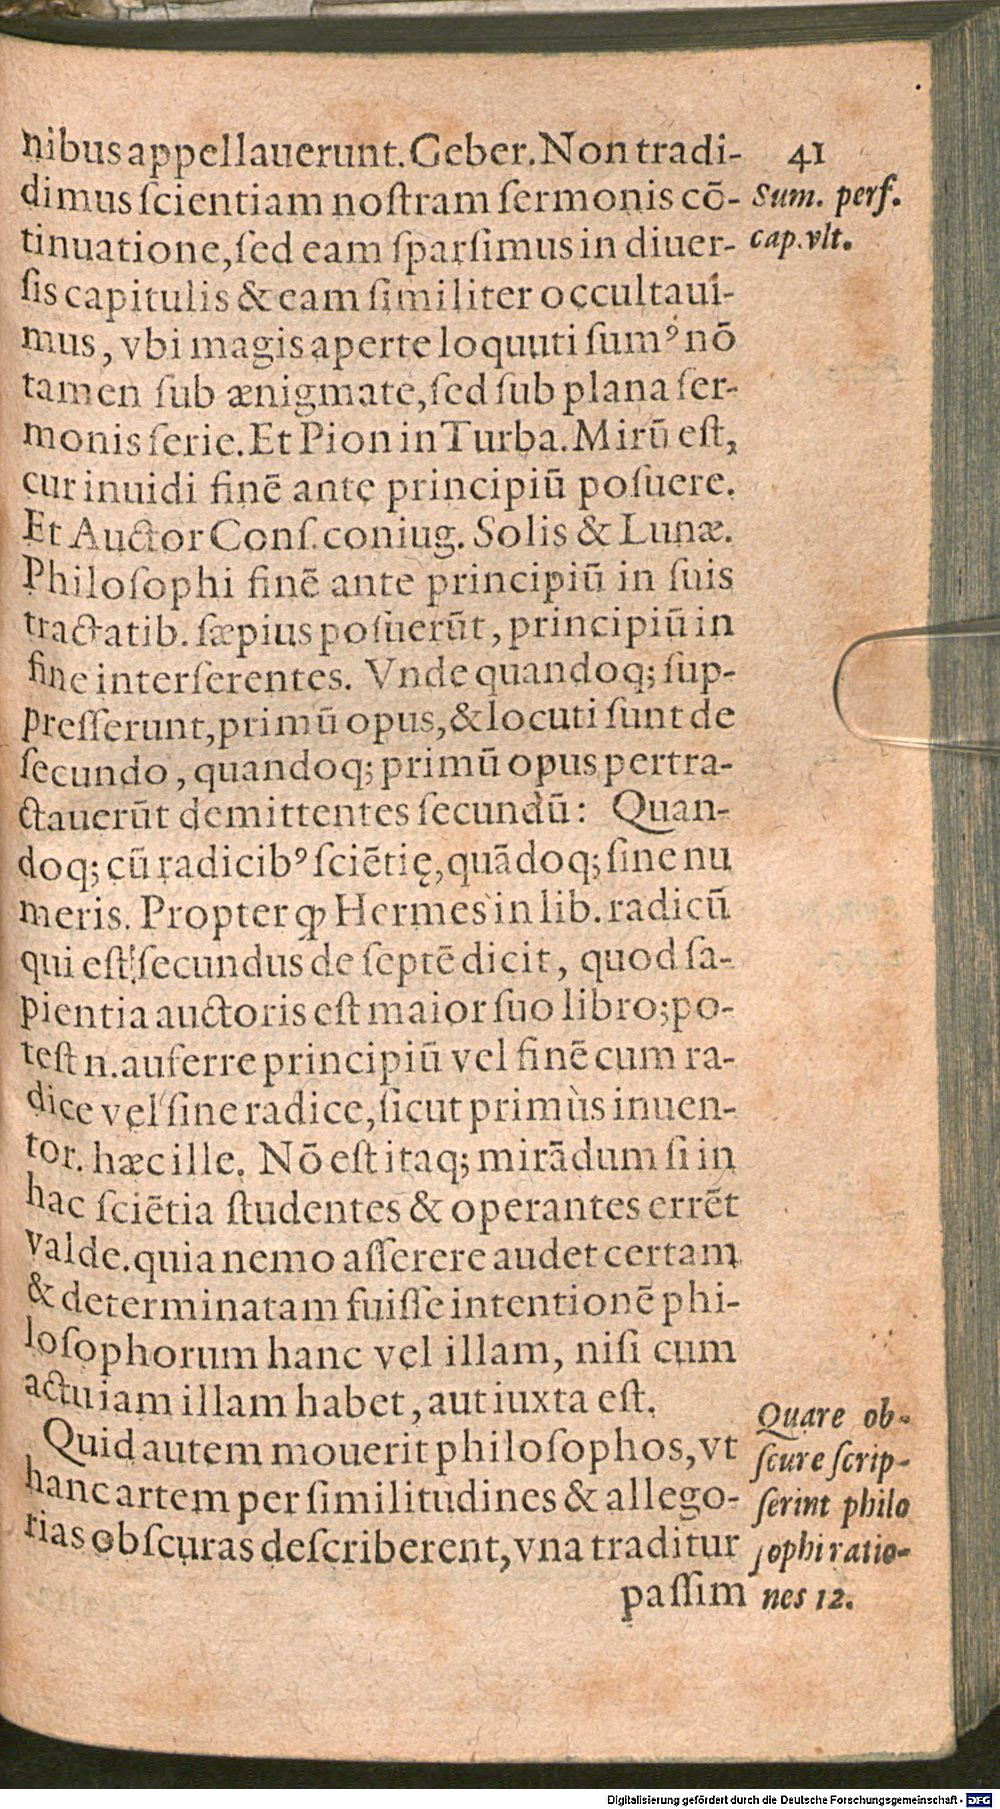 41
nibus appellauerunt. Geber. Non tradi-
dimus ſcientiam noſtram ſermonis cō-
tinuatione, ſed eam ſparſimus in diuer-
ſis capitulis & eam ſimiliter occultaui-
mus, vbi magis aperte loquuti ſumꝰ nō
tamen ſub ænigmate, ſed ſub plana ſer-
monis ſerie. Et Pion in Turba. Mirū eſt,
cur inuidi finē ante principiū poſuere.
Et Auctor Conſ. coniug. Solis & Lunæ.
Philoſophi finē ante principiū in ſuis
tractatib. ſæpius poſuerūt, principiū in
fine interſerentes. Vnde quandoq; ſup-
preſſerunt, primū opus, & locuti ſunt de
ſecundo, quandoq; primū opus pertra-
ctauerūt demittentes ſecundū: Quan-
doq; cū radicibꝰ ſciētię, quādoq; ſine nu
meris. Propter ꝙ Hermes in lib. radicū
qui eſt ſecundus de ſeptē dicit, quod ſa-
pientia auctoris eſt maior ſuo libro; po-
teſt n. auferre principiū vel finē cum ra-
dice vel ſine radice, ſicut primùs inuen-
tor. hæc ille. Nō eſt itaq; mirādum ſi in
hac ſciētia ſtudentes & operantes errēt
valde. quia nemo aſſerere audet certam
& determinatam fuiſſe intentionē phi-
loſophorum hanc vel illam, niſi cum
actu iam illam habet, aut iuxta eſt.
Quid autem mouerit philoſophos, vt
hanc artem per ſimilitudines & allego-
rias obſcuras deſcriberent, vna traditur
paſſim
Sum. perf.
cap. vlt.
Quare ob-
ſcure ſcrip-
ſerint philo
ſophi ratio-
nes 12.
Digitalisierung gefördert durch die Deutsche Forschungsgemeinschaft - DFG